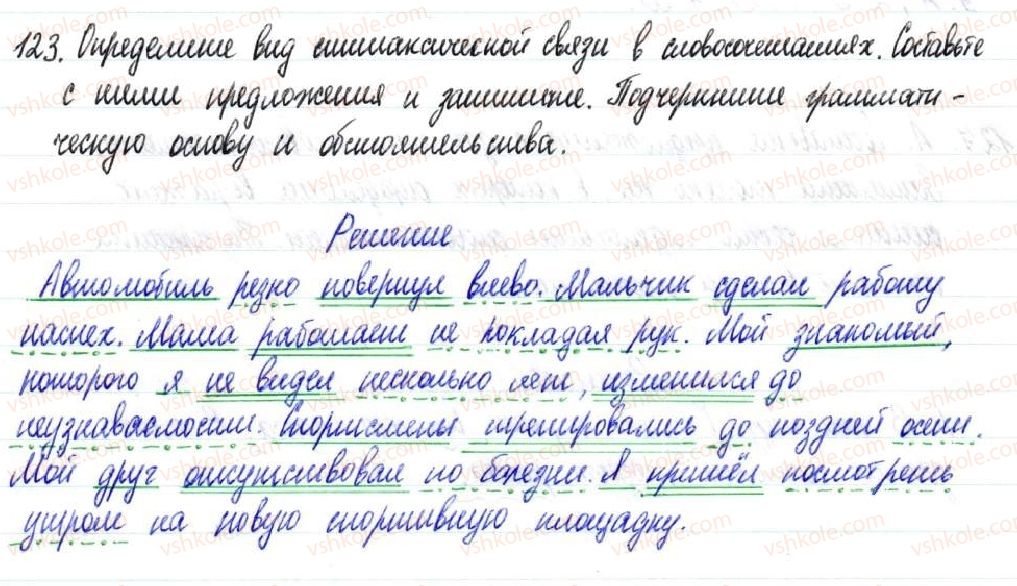 123. Определите вид синтаксической связи в словосочетаниях. Составьте
с ними предложения и запишите. Подчеркните граммати-
ческую основу и обстоятельства.
Решение
Автомобиль резко повернул влево. Мальчик сделал работу
наспех. Мама работает не покладая рук. Мой знакомый,
которого я не видел несколько лет, изменился до
неузнаваемости. Спортсмены тренировались до поздней осени.
Мой друг отсутствовал по болезни. Я пришёл посмотреть
утром на новую спортивную площадку.
vshkole.com